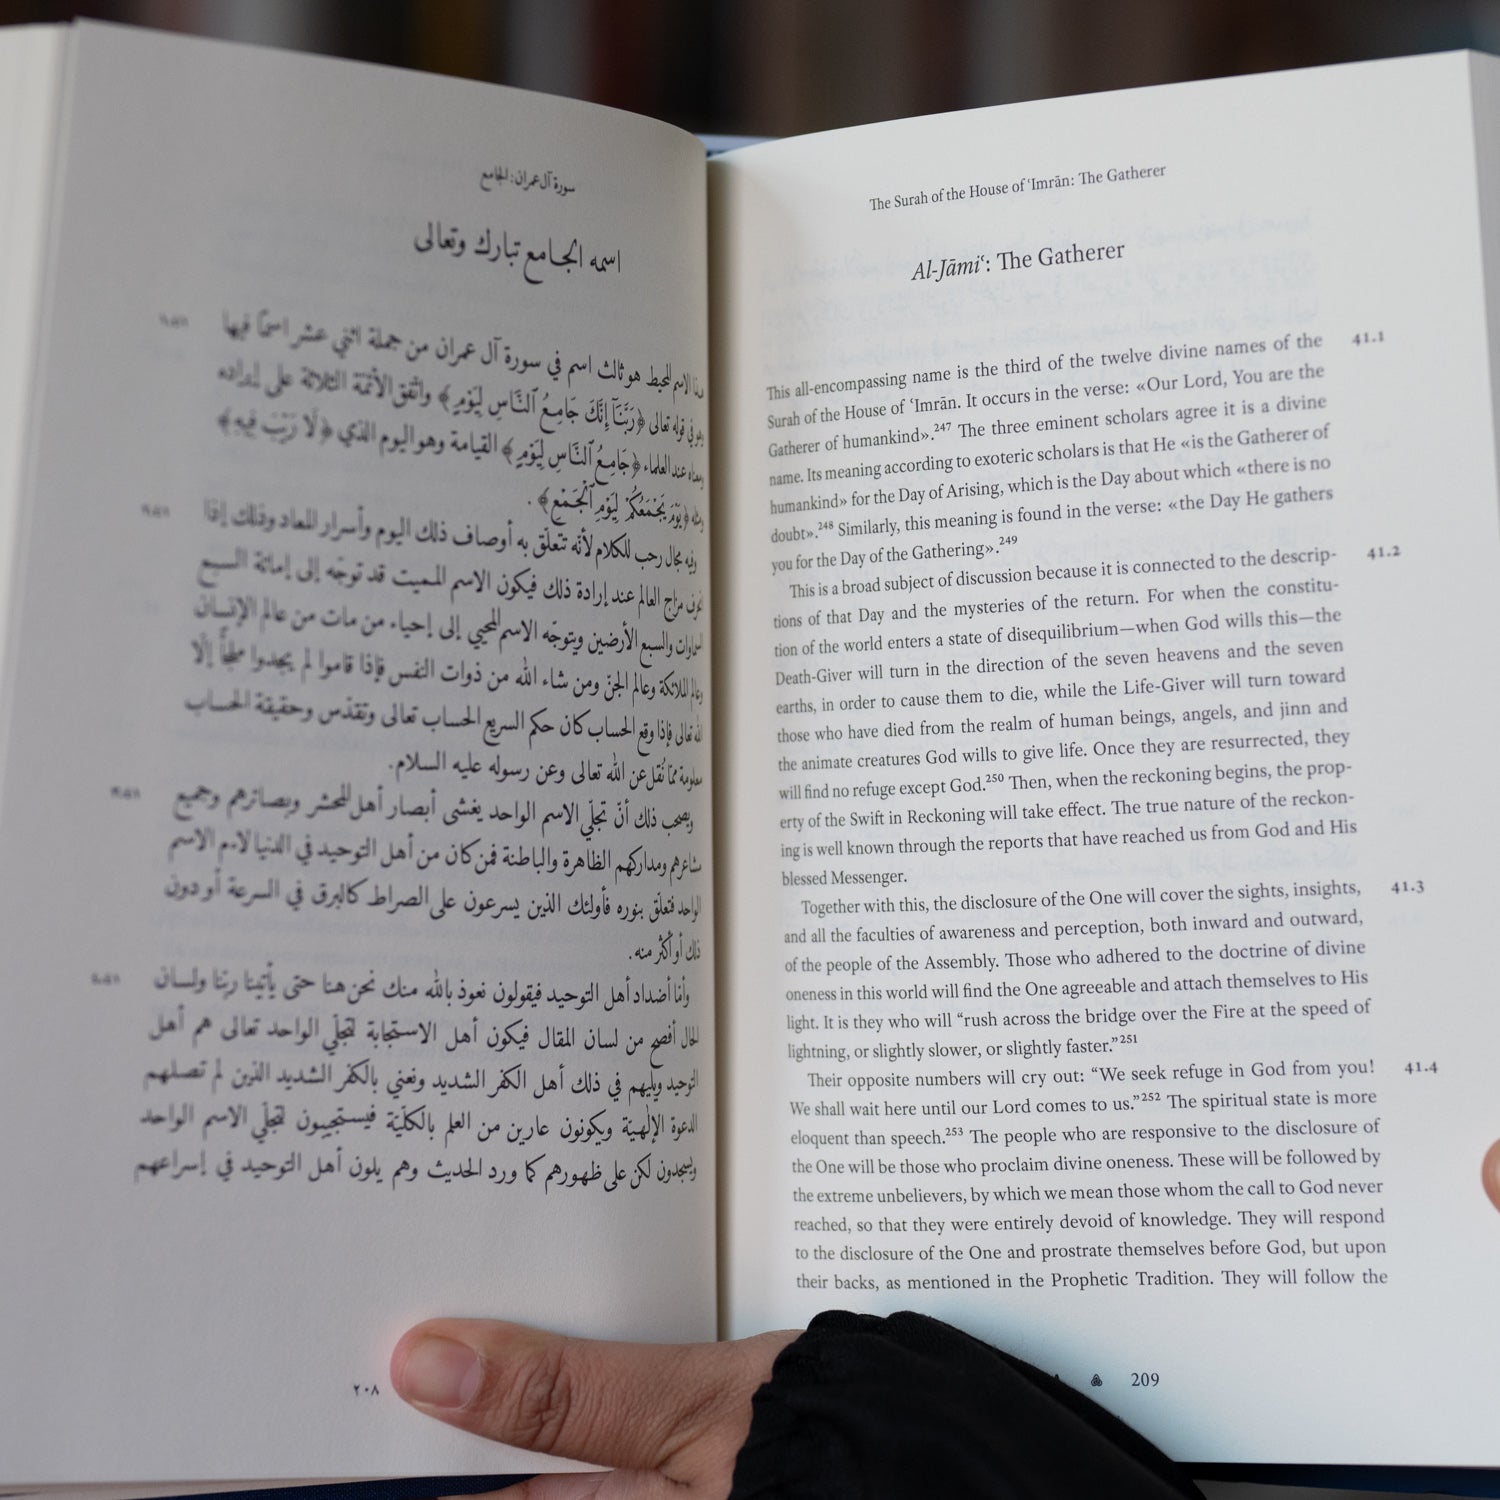 سورة آل عمران: الجامع
اسمه الجامع تبارك وتعالى
هذا الاسم المحيط هو ثالث اسم في سورة آل عمران من جملة اثني عشر اسمًا فيها
وهو في قوله تعالى ﴿رَبَّنَآ إِنَّكَ جَامِعُ ٱلنَّاسِ لِيَوْمٍ﴾ واتّفق الأئمّة الثلاثة على إيراده
ومعناه عند العلماء ﴿جَامِعُ ٱلنَّاسِ لِيَوْمٍ﴾ القيامة وهو اليوم الذي ﴿لَا رَيْبَ فِيهِ﴾
ومثله ﴿يَوْمَ يَجْمَعُكُمْ لِيَوْمِ ٱلْجَمْعِ﴾.
وفيه مجال رحب للكلام لأنّه تتعلّق به أوصاف ذلك اليوم وأسرار المعاد وذلك إذا
انحرف مزاج العالم عند إرادة ذلك فيكون الاسم المميت قد توجّه إلى إماتة السبع
السماوات والسبع الأرضين ويتوجّه الاسم المحيي إلى إحياء من مات من عالم الإنسان
وعالم الملائكة وعالم الجنّ ومن شاء الله من ذوات النفس فإذا قاموا لم يجدوا ملجأً إلّا
الله تعالى فإذا وقع الحساب كان حكم السريع الحساب تعالى وتقدّس وحقيقة الحساب
معلومة ممّا نُقل عن الله تعالى وعن رسوله عليه السلام.
ويصحب ذلك أنّ تجلّي الاسم الواحد يغشى أبصار أهل المحشر وبصائرهم وجميع
مشاعرهم ومداركهم الظاهرة والباطنة فمن كان من أهل التوحيد في الدنيا لاءم الاسم
الواحد فتعلّق بنوره فأولئك الذين يسرعون على الصراط كالبرق في السرعة أو دون
ذلك أو أكثر منه.
وأمّا أضداد أهل التوحيد فيقولون نعوذ بالله منك نحن هنا حتى يأتينا ربّنا ولسان
الحال أفصح من لسان المقال فيكون أهل الاستجابة لتجلّي الواحد تعالى هم أهل
التوحيد ويليهم في ذلك أهل الكفر الشديد ونعني بالكفر الشديد الذين لم تصلهم
الدعوة الإلهيّة ويكونون عارين من العلم بالكلّيّة فيستجيبون لتجلّي الاسم الواحد
ويسجدون لكن على ظهورهم كما ورد الحديث وهم يلون أهل التوحيد في إسراعهم
٢٠٨
The Surah of the House of ʿImrān: The Gatherer
Al-Jāmiʿ: The Gatherer
This all-encompassing name is the third of the twelve divine names of the 41.1
Surah of the House of ʿImrān. It occurs in the verse: «Our Lord, You are the
Gatherer of humankind».247 The three eminent scholars agree it is a divine
name. Its meaning according to exoteric scholars is that He «is the Gatherer of
humankind» for the Day of Arising, which is the Day about which «there is no
doubt».248 Similarly, this meaning is found in the verse: «the Day He gathers
you for the Day of the Gathering».249
This is a broad subject of discussion because it is connected to the descrip- 41.2
tions of that Day and the mysteries of the return. For when the constitu-
tion of the world enters a state of disequilibrium—when God wills this—the
Death-Giver will turn in the direction of the seven heavens and the seven
earths, in order to cause them to die, while the Life-Giver will turn toward
those who have died from the realm of human beings, angels, and jinn and
the animate creatures God wills to give life. Once they are resurrected, they
will find no refuge except God.250 Then, when the reckoning begins, the prop-
erty of the Swift in Reckoning will take effect. The true nature of the reckon-
ing is well known through the reports that have reached us from God and His
blessed Messenger.
Together with this, the disclosure of the One will cover the sights, insights, 41.3
and all the faculties of awareness and perception, both inward and outward,
of the people of the Assembly. Those who adhered to the doctrine of divine
oneness in this world will find the One agreeable and attach themselves to His
light. It is they who will “rush across the bridge over the Fire at the speed of
lightning, or slightly slower, or slightly faster.”251
Their opposite numbers will cry out: “We seek refuge in God from you! 41.4
We shall wait here until our Lord comes to us.”252 The spiritual state is more
eloquent than speech.253 The people who are responsive to the disclosure of
the One will be those who proclaim divine oneness. These will be followed by
the extreme unbelievers, by which we mean those whom the call to God never
reached, so that they were entirely devoid of knowledge. They will respond
to the disclosure of the One and prostrate themselves before God, but upon
their backs, as mentioned in the Prophetic Tradition. They will follow the
209